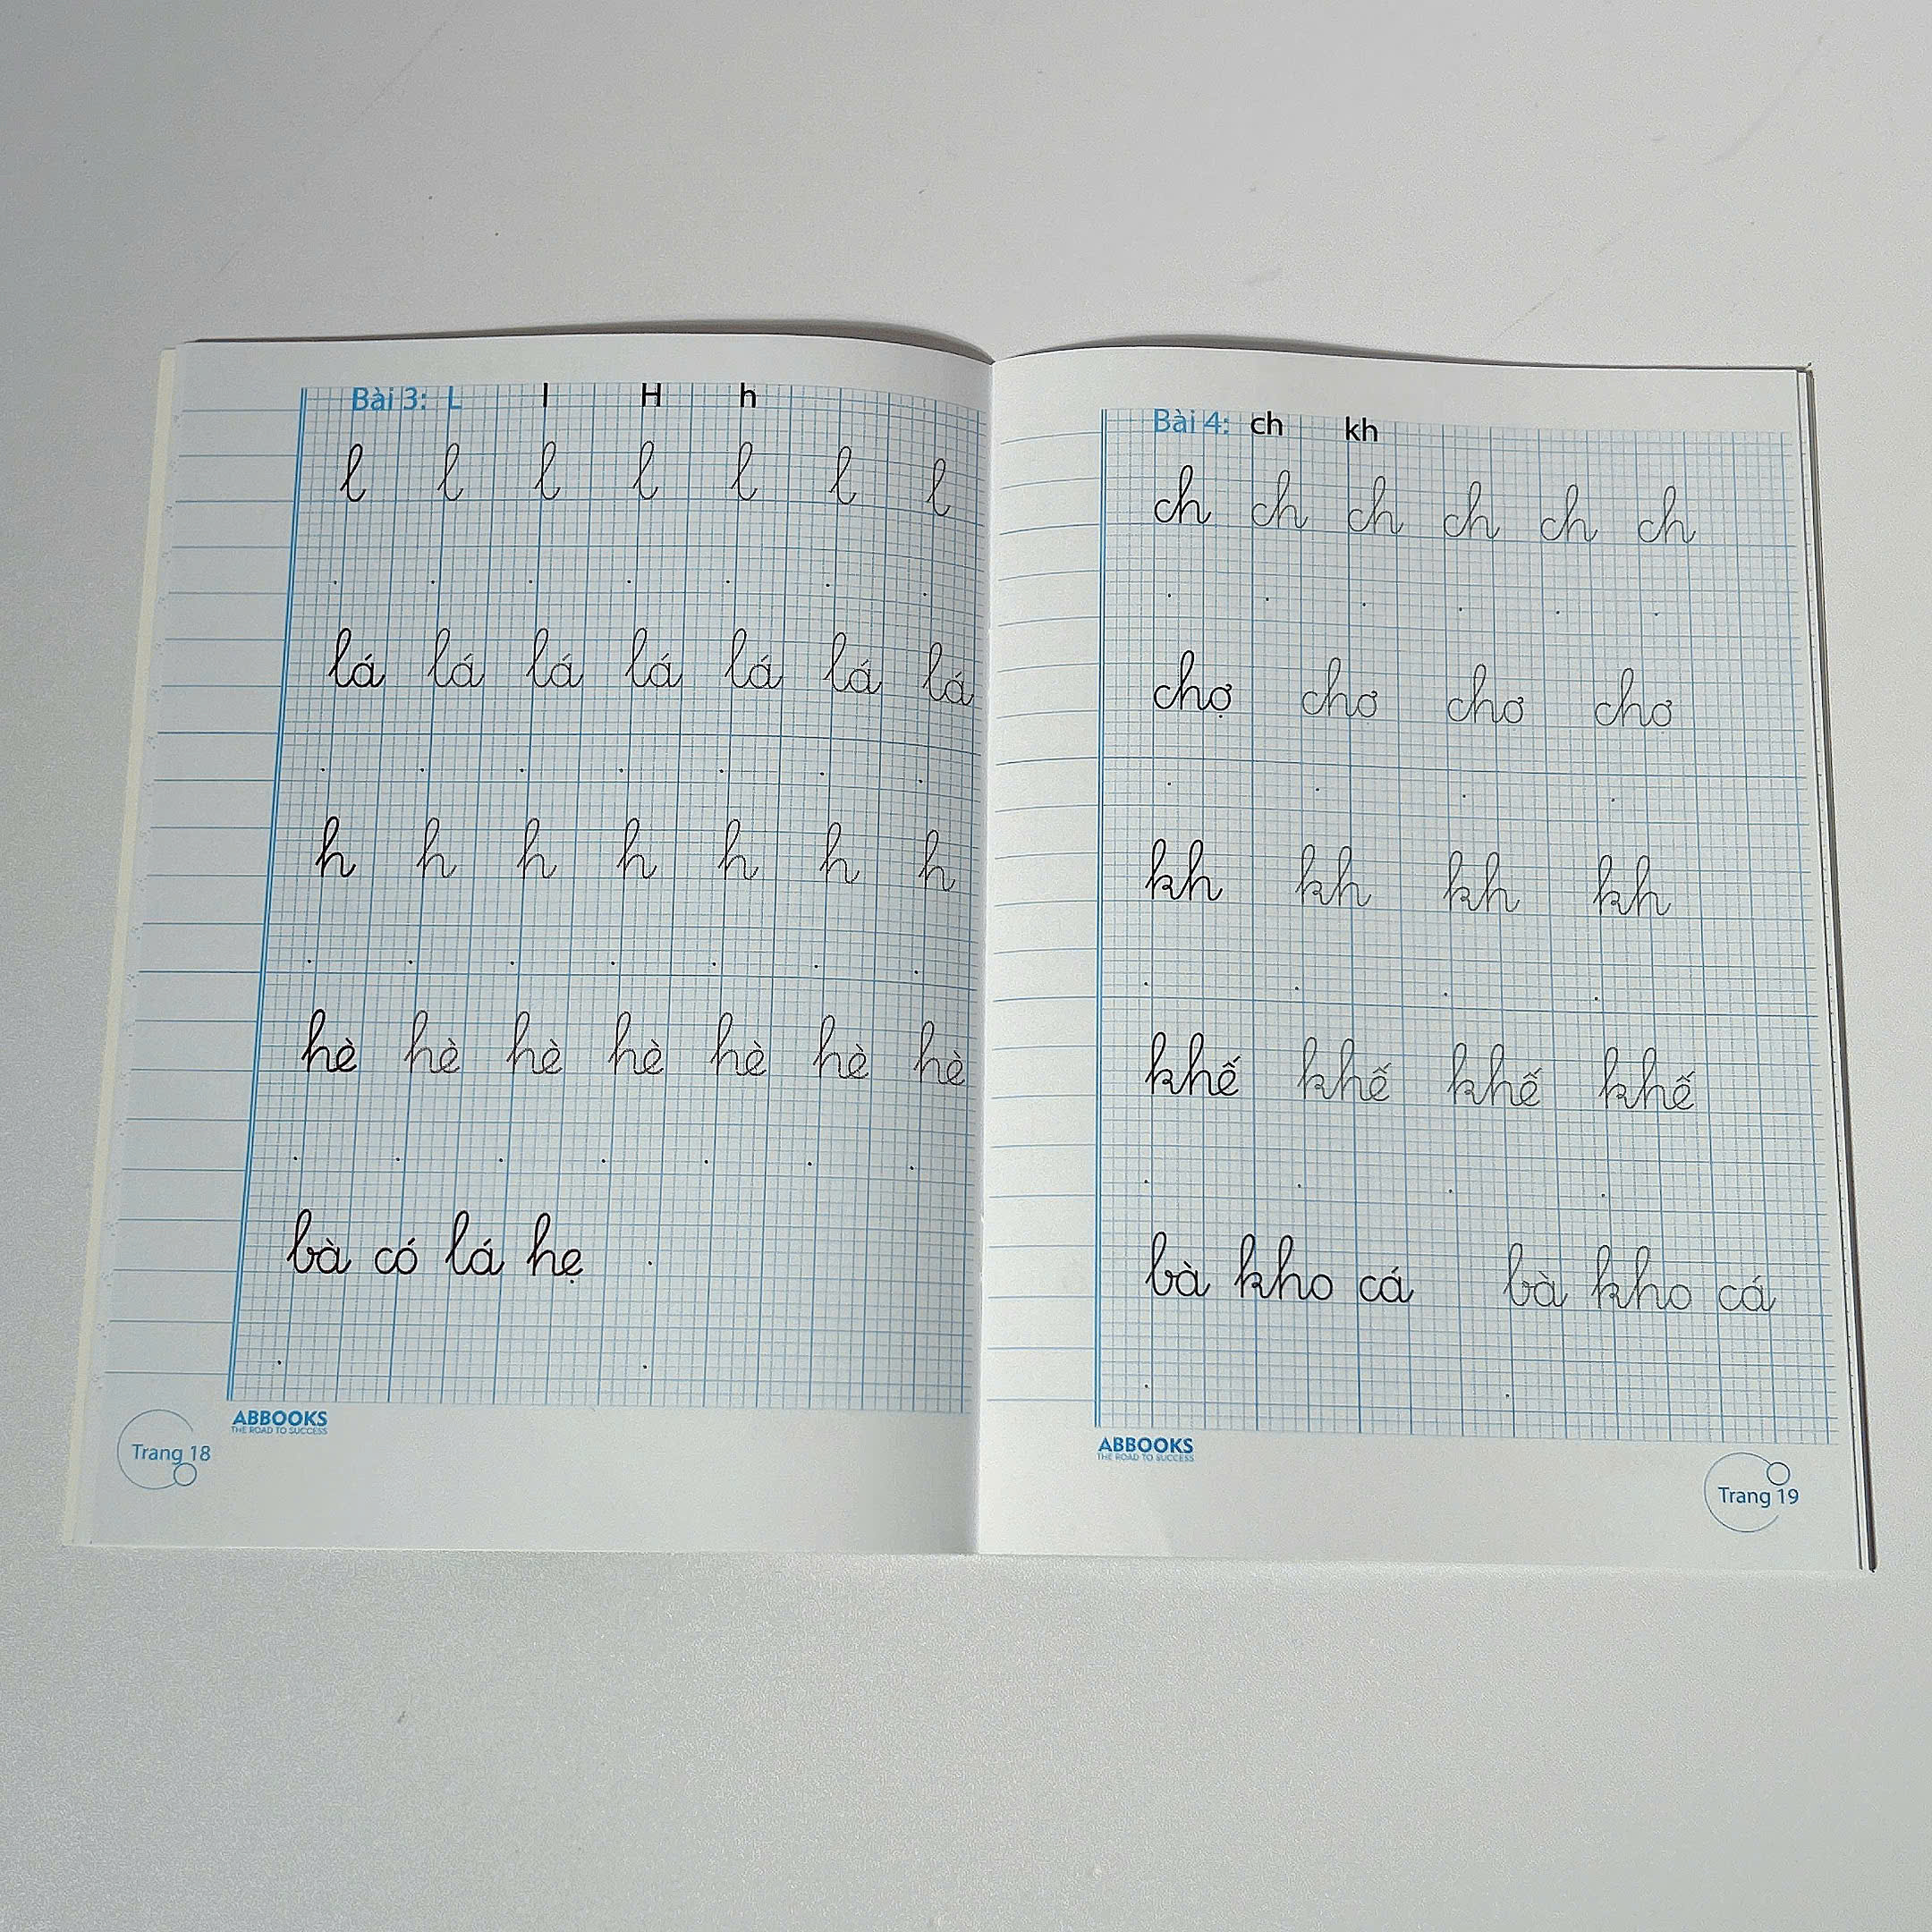 Bài 3: L l H h
l l l l l l l
lá lá lá lá lá lá lá
h h h h h h h
hè hè hè hè hè hè hè
bà có lá hẹ
ABBOOKS
THE ROAD TO SUCCESS
Trang 18
Bài 4: ch kh
ch ch ch ch ch ch
chợ chợ chợ chợ
kh kh kh kh
khế khế khế khế
bà kho cá bà kho cá
ABBOOKS
THE ROAD TO SUCCESS
Trang 19